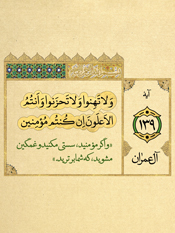 آیه
۱۳۹
آل عمران
وَلَا تَهِنُوا وَلَا تَحْزَنُوا وَأَنْتُمُ
الْأَعْلَوْنَ إِنْ كُنْتُمْ مُؤْمِنِينَ
«و اگر مؤمنید، سستی مکنید و غمگین
مشوید، که شما برترید.»